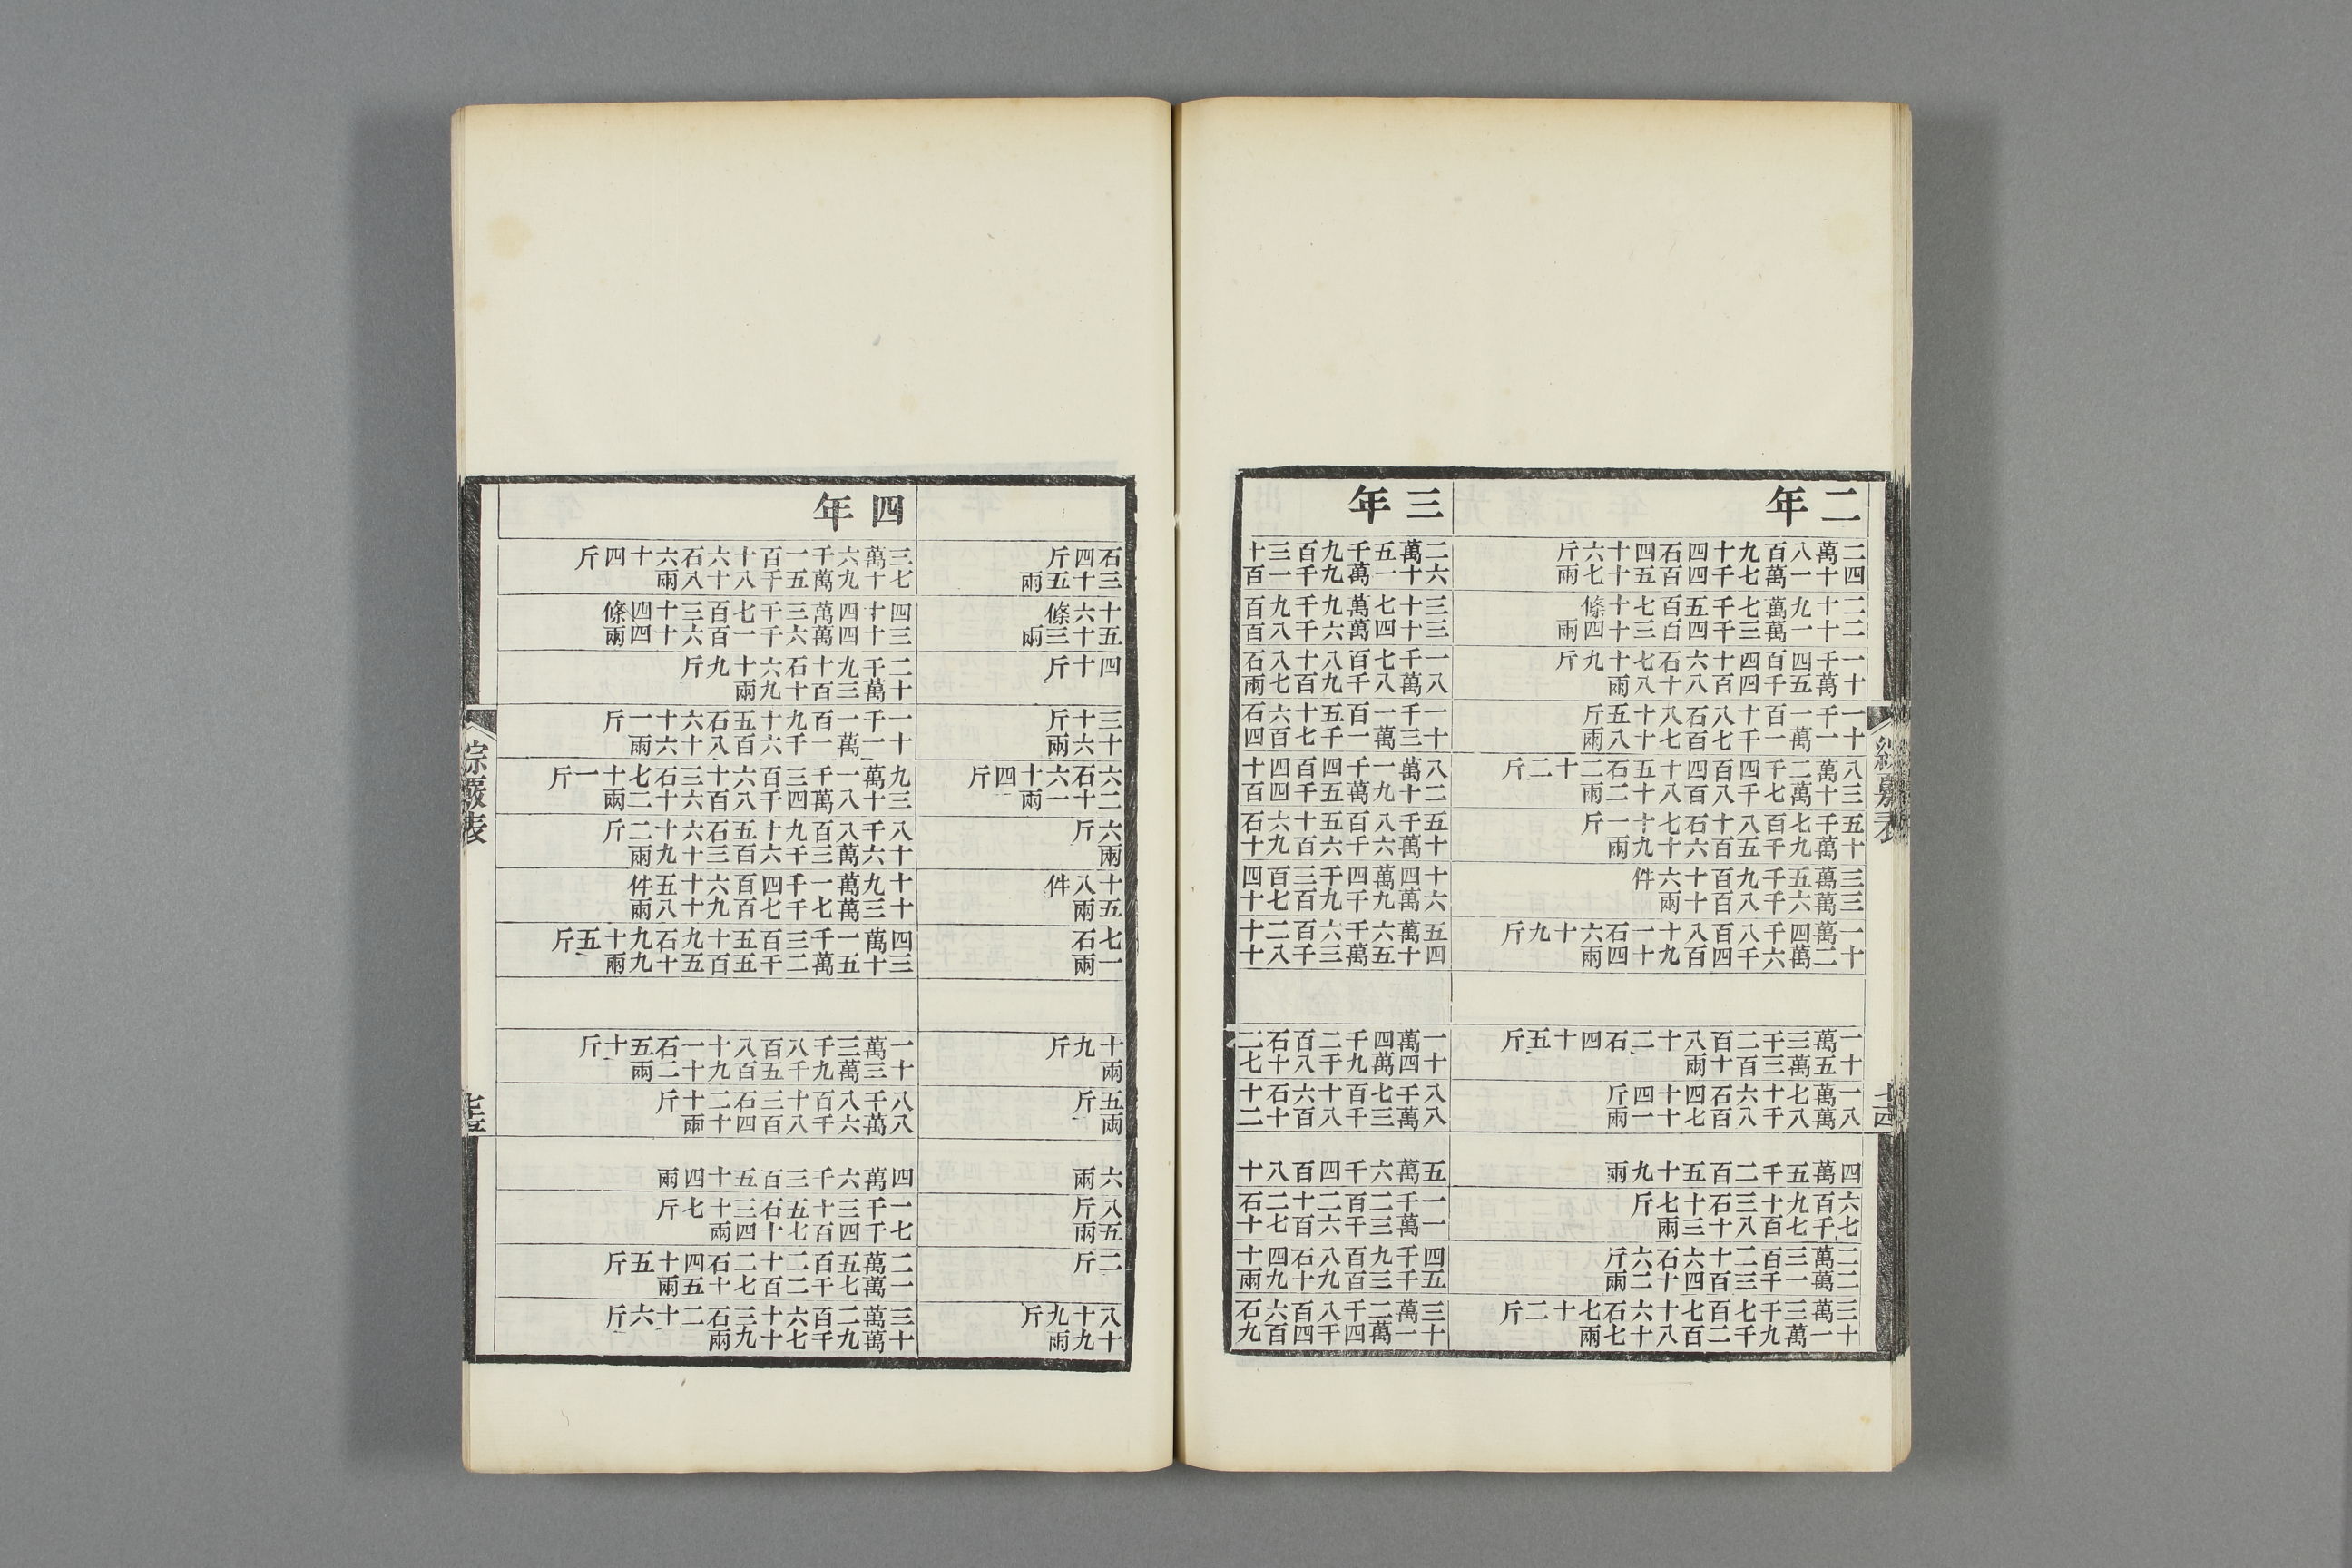 二年
二萬八百九十四石四十六斤
四十一萬七千四百五十七兩
二十九萬七千五百七十條
二十一萬三千四百三十四兩
一千四百四十六石七十九斤
十萬五千四百八十八兩
一千一百十八石八十五斤
十一萬一千七百七十八兩
八萬二千四百四十五石二十二斤
三十萬七千八百八十二兩
五千七百八十石七十一斤
十萬九千五百六十九兩
三萬五千九百十六件
三萬六千八百十兩
一萬四千八百八十一石六十九斤
十二萬六千四百九十四兩
一萬三千二百八十二石四十五斤
十五萬三百十兩
一萬七十六石四十四斤
八萬八千八百七十一兩
四萬五千二百五十九兩
六百九十三石十七斤
七千七百八十三兩
二萬三百二十六石六斤
二萬一千三百四十二兩
三萬三千七百七十六石七十二斤
十一萬九千二百八十七兩
三年
二萬五千九百三十
六十一萬九千一百
三十七萬九千九百
三十四萬六千八百
一千七百八十八石
八萬八千九百七兩
一千一百五十六石
十三萬一千七百四
八萬一千四百四十
二十九萬五千四百
五千八百五十六石
十萬六千六百九十
十四萬四千三百四
六萬九千九百七十
五萬六千六百二十
四十五萬三千八十
一萬四千二百石二
十四萬九千八十七
八千七百十六石十
八萬三千八百十二
五萬六千四百八十
一千二百二十二石
一萬三千六百七十
四千九百八石四十
五千三百九十九兩
三萬二千八百六石
十一萬四千四百九
十四
石四斤
三十五兩
十六條
五十三兩
四十斤
三十斤
十六兩
六石六十四斤
二十一兩
六斤
兩
十八件
五兩
七石
一兩
十九斤
兩
五斤
兩
六兩
八斤
五兩
二斤
八十九斤
十九兩
四年
三萬六千一百十六石六十四斤
七十九萬五千八十八兩
四十四萬三千七百三十四條
三十四萬六千一百六十四兩
二千九十石六十九斤
十萬三百十九兩
一千一百九十五石六十一斤
十一萬一千六百八十六兩
九萬一千三百六十三石七十一斤
三十八萬四千八百六十二兩
八千八百九十五石六十二斤
十六萬三千六百三十九兩
十九萬一千四百六十五件
十三萬七千七百九十八兩
四萬一千三百五十九石九十五斤
三十五萬二千五百五十九兩
一萬三千八百八十一石五十斤
十三萬九千五百九十二兩
八千八百十三石二十斤
八萬六千八百四十兩
四萬六千三百五十四兩
一千三十五石三十七斤
七千四百七十四兩
二萬五百二十二石四十五斤
一萬七千二百七十五兩
三萬二百六十三石二十六斤
十萬九千七十九兩
綜覈表
十五